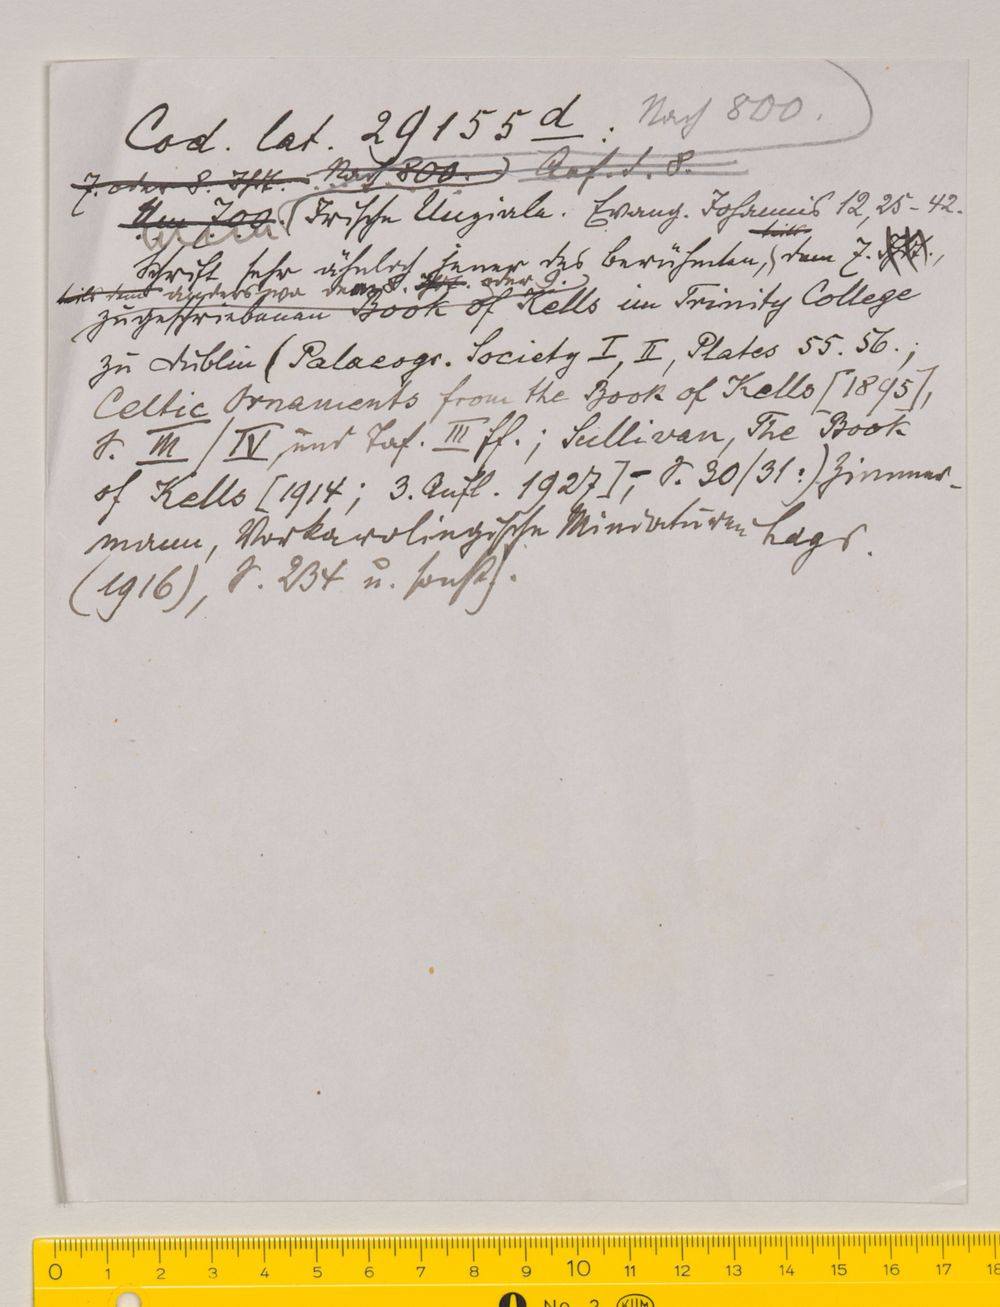 Cod. lat. 29155 d : Nach 800.
7. oder 8. Jhh. Nach 800. Anf. d. 8.
Um 700. Irische Unziale. Evang. Johannis 12,25-42.
Schrift sehr ähnlich jener des berühmten, teils dem 7. Jhh.,
teils dem anderswo dem 8. oder 9.
zugeschriebenen Book of Kells im Trinity College
zu Dublin (Palaeogr. Society I, II, Plates 55. 56.;
Celtic Ornaments from the Book of Kells [1895],
S. III / IV und Taf. III ff.; Sullivan, The Book
of Kells [1914; 3. Aufl. 1927], S. 30/31:) Zimmer-
mann, Vorkarolingische Miniaturen
(1916), S. 234 u. sonst).
0 1 2 3 4 5 6 7 8 9 10 11 12 13 14 15 16 17 18
No. 2 KUM